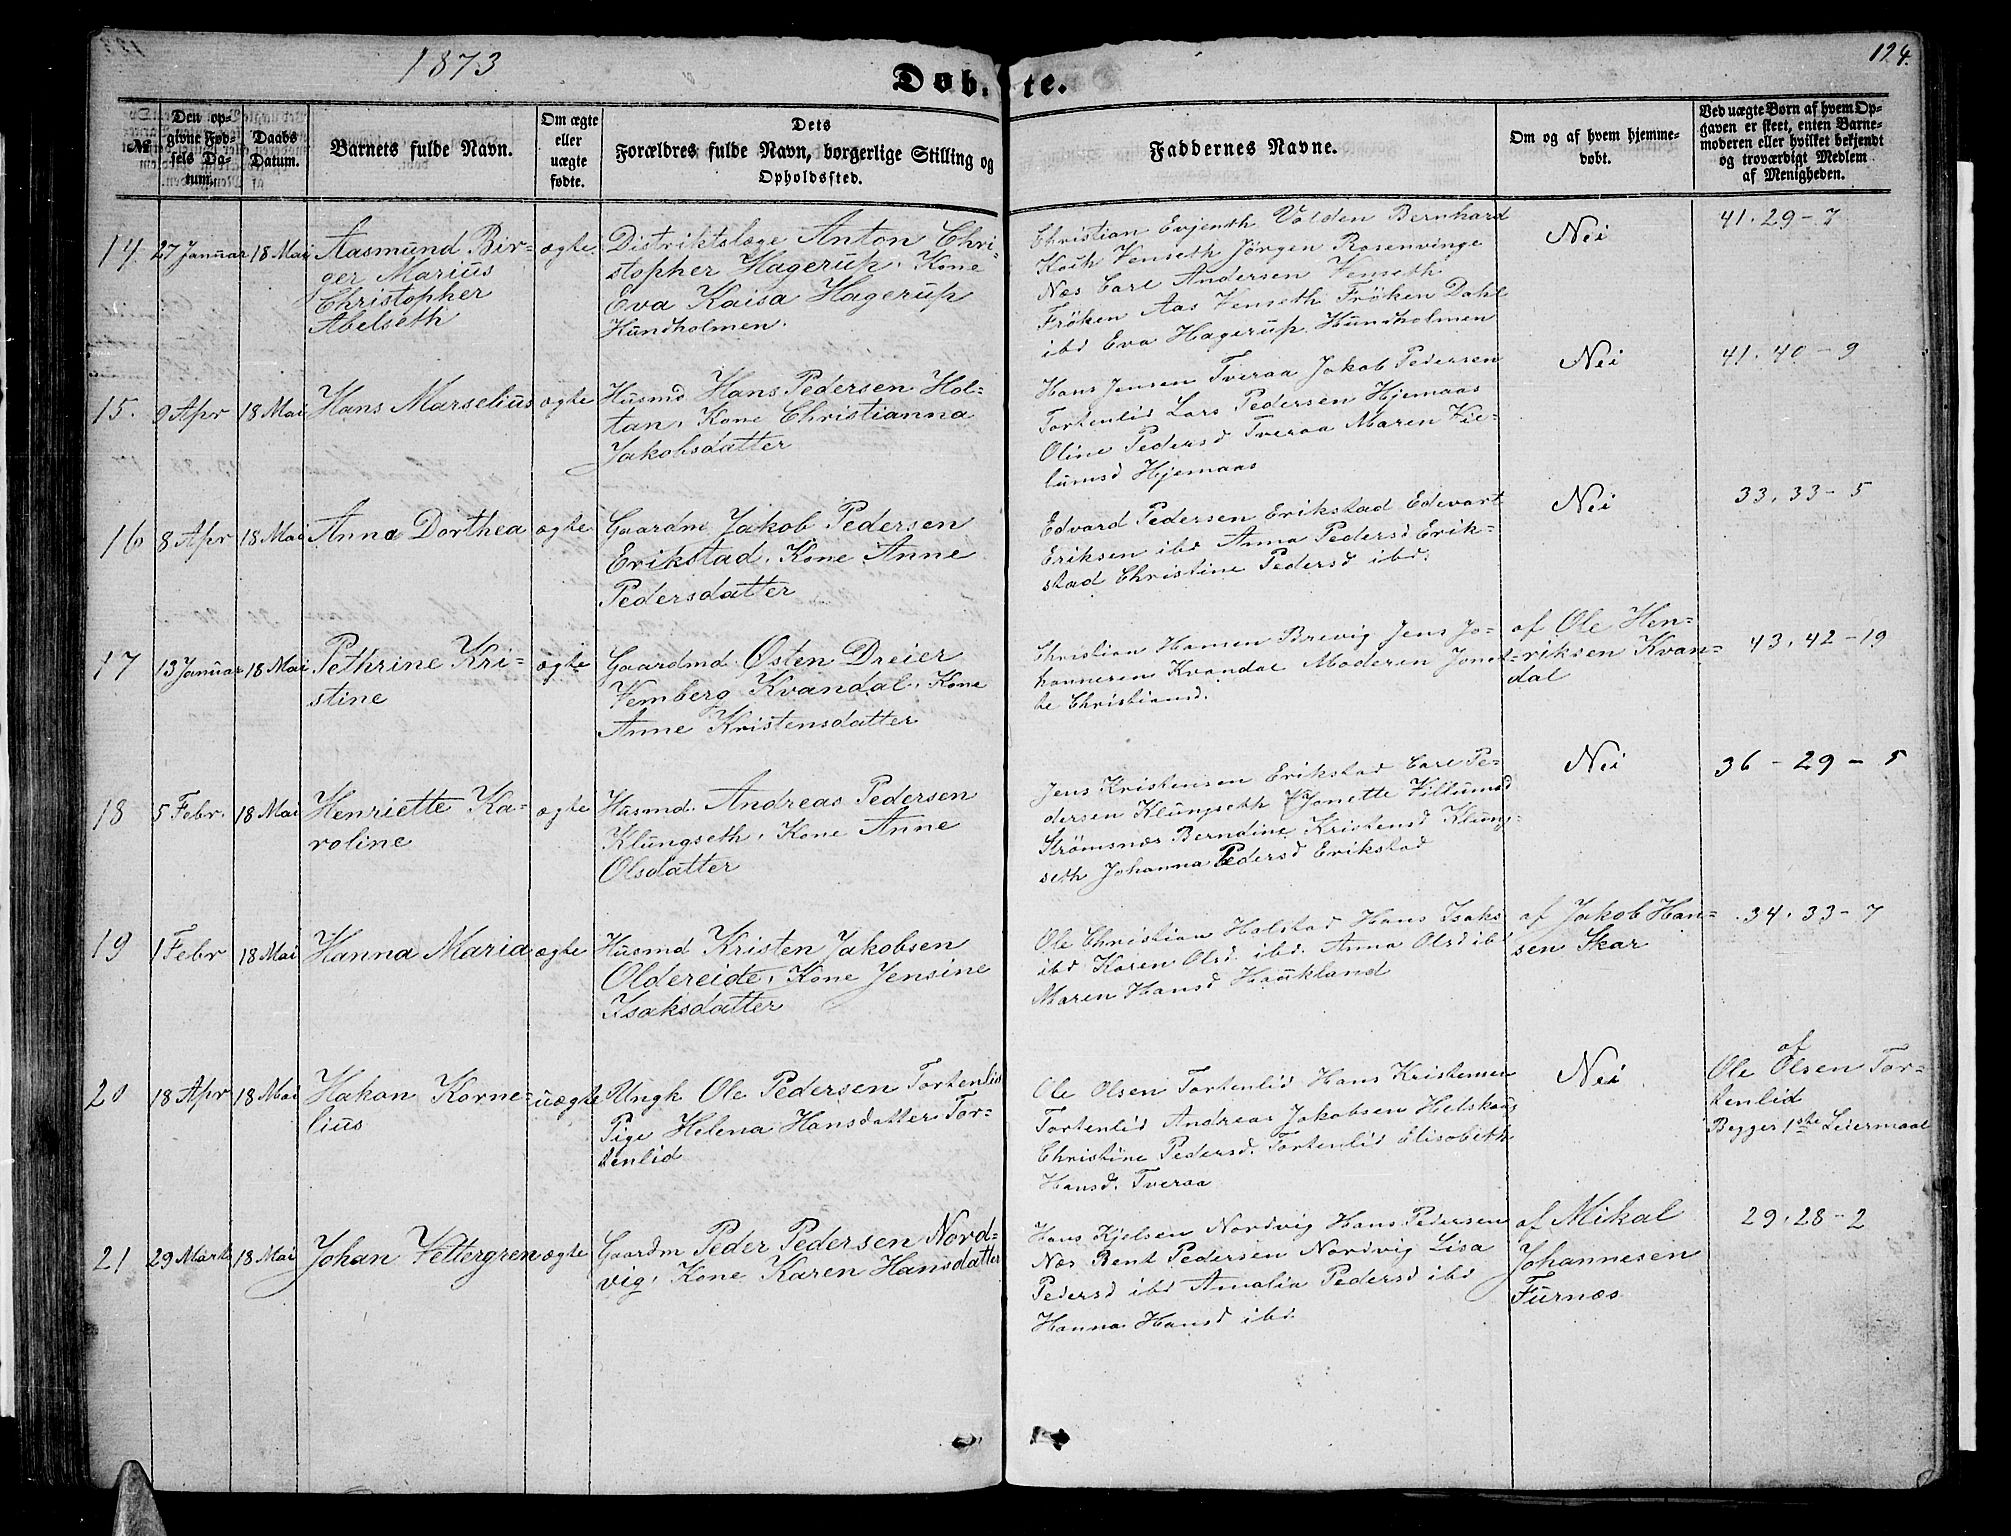 1873
124.
Døb-te.
№
Den op-
givne Fød-
sels Da-
tum.
Daabs
Datum.
Barnets fulde Navn.
Om ægte
eller
uægte
fødte.
Dets
Forældres fulde Navn, borgerlige Stilling og
Opholdssted.
Faddernes Navne.
Om og af hvem hjemme-
døbt.
Ved uægte Børn af hvem Op-
gaven er skeet, enten Barne-
moderen eller hvilket bekjendt
og troværdigt Medlem
af Menigheden.
14. 27 Januar 18 Mai
Aasmund Bir-
ger Marius
Christopher
Abelseth
ægte
Distriktslæge Anton Chri-
stopher Hagerup. Kone
Eva Kaisa Hagerup
Hundholmen.
Christian Evjenth Valden Bernhard
Koch Venseth Jörgen Rosenvinge
Næs Carl Andersen Venseth
Fröken Aas Venseth Fröken Dahl
ibd Eva Hagerup Hundholmen
Nei
41. 29 - 7
15. 9 Apr 18 Mai
Hans Marselius
ægte
Husmd Hans Pedersen Hol-
tan. Kone Christianna
Jakobsdatter
Hans Jensen Tveraa Jakob Pedersen
Tortenlid Lars Pedersen Hjemaas
Oline Pedersd Tveraa Maren Vil-
lumsd Hjemaas
Nei
41. 40 - 9
16 8 Apr 18 Mai
Anna Dorthea
ægte
Gaardm Jakob Pedersen
Erikstad. Kone Anne
Pedersdatter
Edvard Pedersen Erikstad Edevart
Eriksen ibd Anna Pedersd Erik-
stad Christine Pedersd ibd.
Nei
33. 33 - 5
17 13 Januar 18 Mai
Pethrine Kri-
stine
ægte
Gaardmd. Østen Dreier
Vemberg Kvandal. Kone
Anne Kristensdatter
Christian Hansen Brevig Jens Jo-
hannesen Kvandal Moderen Jonet-
te Christiansd.
af Ole Hen-
riksen Kvan-
dal
43. 42 - 19
18 5 Febr. 18 Mai
Henriette Ka-
roline
ægte
Husmd. Andreas Pedersen
Klungseth. Kone Anne
Olsdatter
Jens Kristensen Erikstad Carl Pe-
dersen Klungseth Jonette Villumsd
Strømsnæs Berndine Kristensd Klung-
seth Johanna Pedersd Erikstad
Nei
36 - 29 - 5
19 1 Febr 18 Mai
Hanna Maria
ægte
Husmd Kristen Jakobsen
Oldereide. Kone Jensine
Isaksdatter
Ole Christian Halstad Hans Isaks
ibd Karen Olsd ibd. Anna Olsd ibd
Maren Hansd Haukland
af Jakob Han-
sen Skar
34. 33 - 7
20 18 Apr 18 Mai
Hakon Korne-
lius
uægte
Ungk Ole Pedersen Tortenlid
Pige Helena Hansdatter Tor-
tenlid
Ole Olsen Tortenlid Hans Kristensen
Tortenlid Andreas Jakobsen Helskaug
Christine Pedersd. Tortenlid Elisabeth
Hansd. Tveraa
Nei
af
Ole Olsen Tor-
tenlid
Begger 1ste Leiermaal
21 29 Marts 18 Mai
Johan Vettergren
ægte
Gaardm Peder Pedersen Nord-
vig. Kone Karen Hansdatter
Hans Kjelsen Nordvig Hans Pedersen
Næs Bent Pedersen Nordvig Lisa
Pedersd ibd Amalia Pedersd ibd
Hanna Hansd ibd
af Mikal
Johannesen
Furnæs
29. 28 - 2